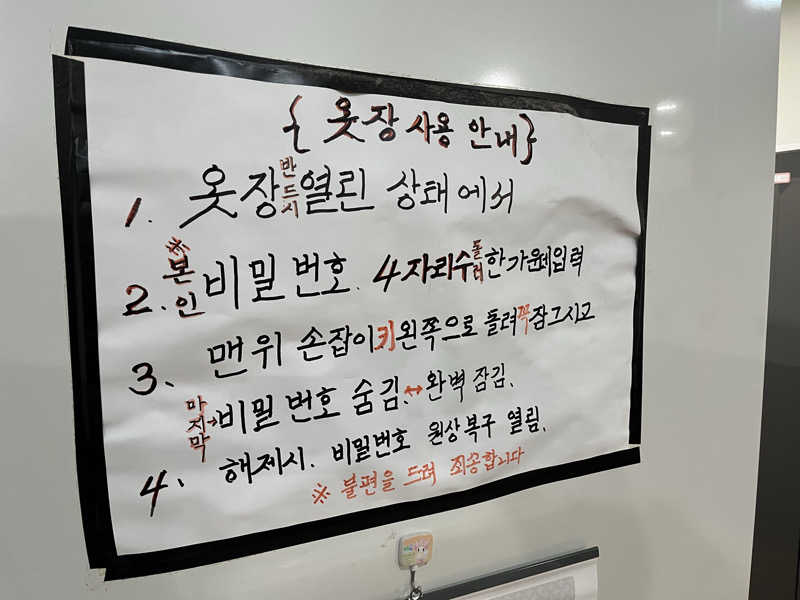 { 옷장 사용 안내 }
1. 옷장 반드시 열린 상태에서
2. ※본인 비밀번호. 4자리수 돌려 한가운데 입력
3. 맨위 손잡이 키 왼쪽으로 돌려 꼭 잠그시고
마지막→비밀번호 숨김.↔완벽 잠김.
4. 해제시. 비밀번호 원상복구 열림.
※ 불편을 드려 죄송합니다